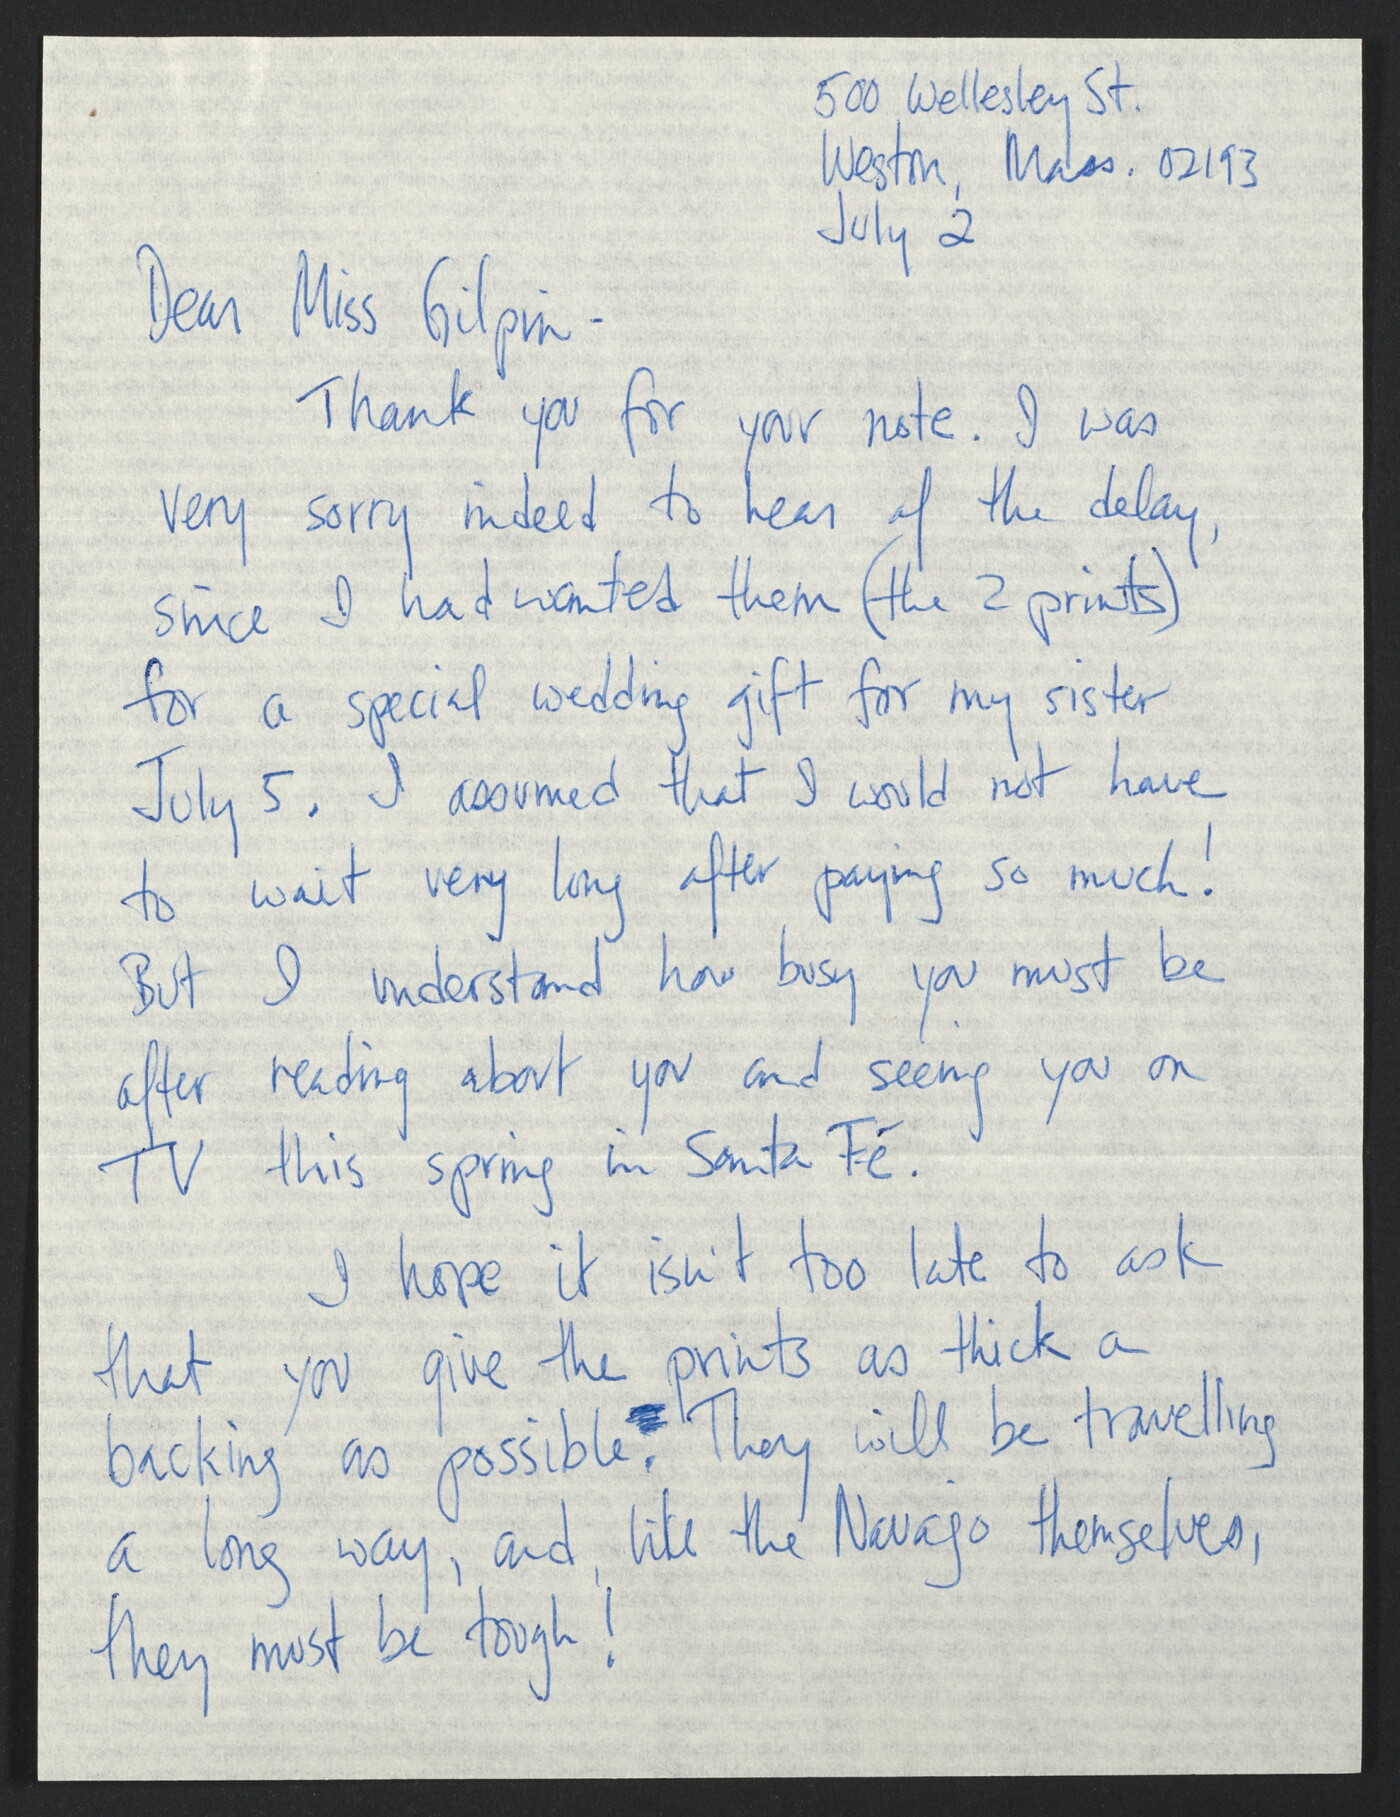 500 Wellesley St.
Weston, Mass. 02193
July 2
Dear Miss Gilpin -
Thank you for your note. I was
very sorry indeed to hear of the delay,
since I had wanted them (the 2 prints)
for a special wedding gift for my sister
July 5. I assumed that I would not have
to wait very long after paying so much!
But I understand how busy you must be
after reading about you and seeing you on
TV this spring in Santa Fé.
I hope it isn't too late to ask
that you give the prints as thick a
backing as possible. They will be travelling
a long way, and, like the Navajo themselves,
they must be tough!